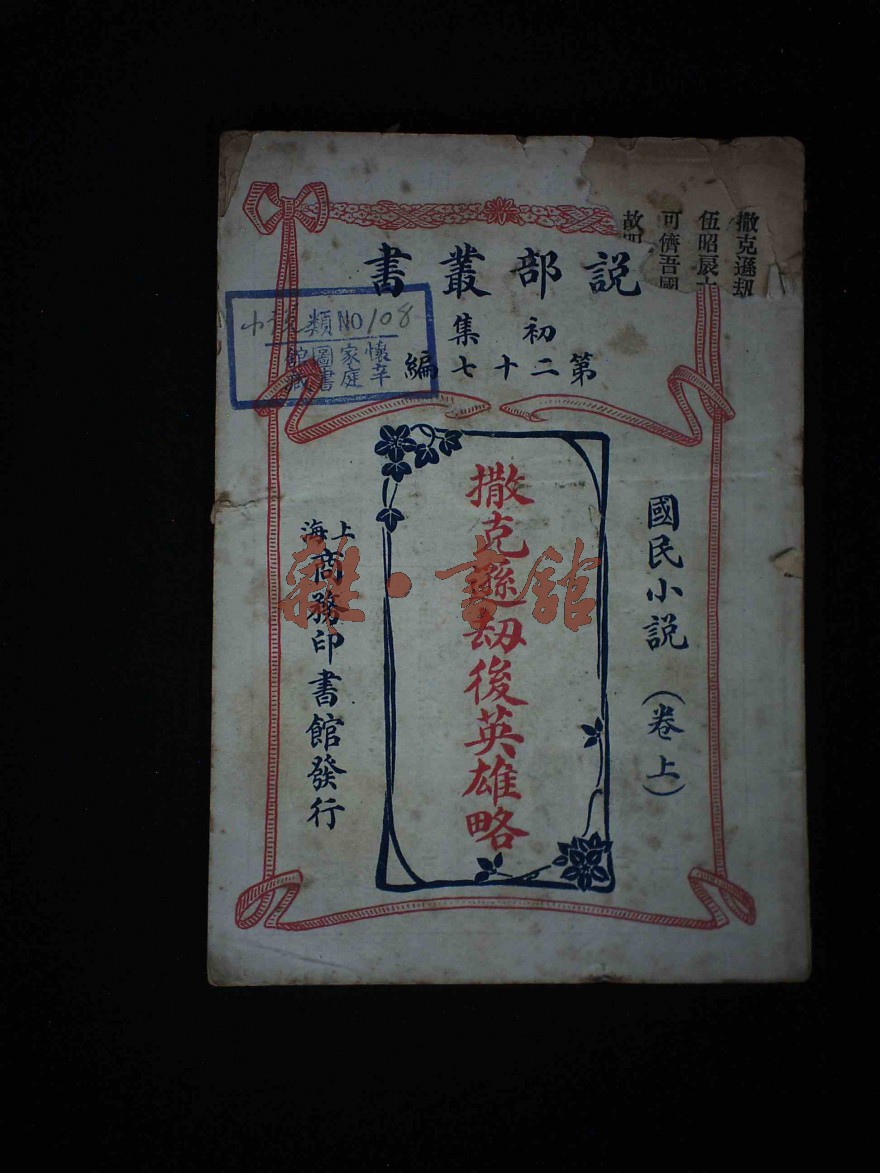 說部叢書
初集
第二十七編
國民小説 (卷上)
撒克遜劫後英雄略
上海
商務印書館發行
類 NO 108
懷辛
家庭
圖書
館藏
撒克遜劫
伍昭扆
可儕吾國
雜·書館